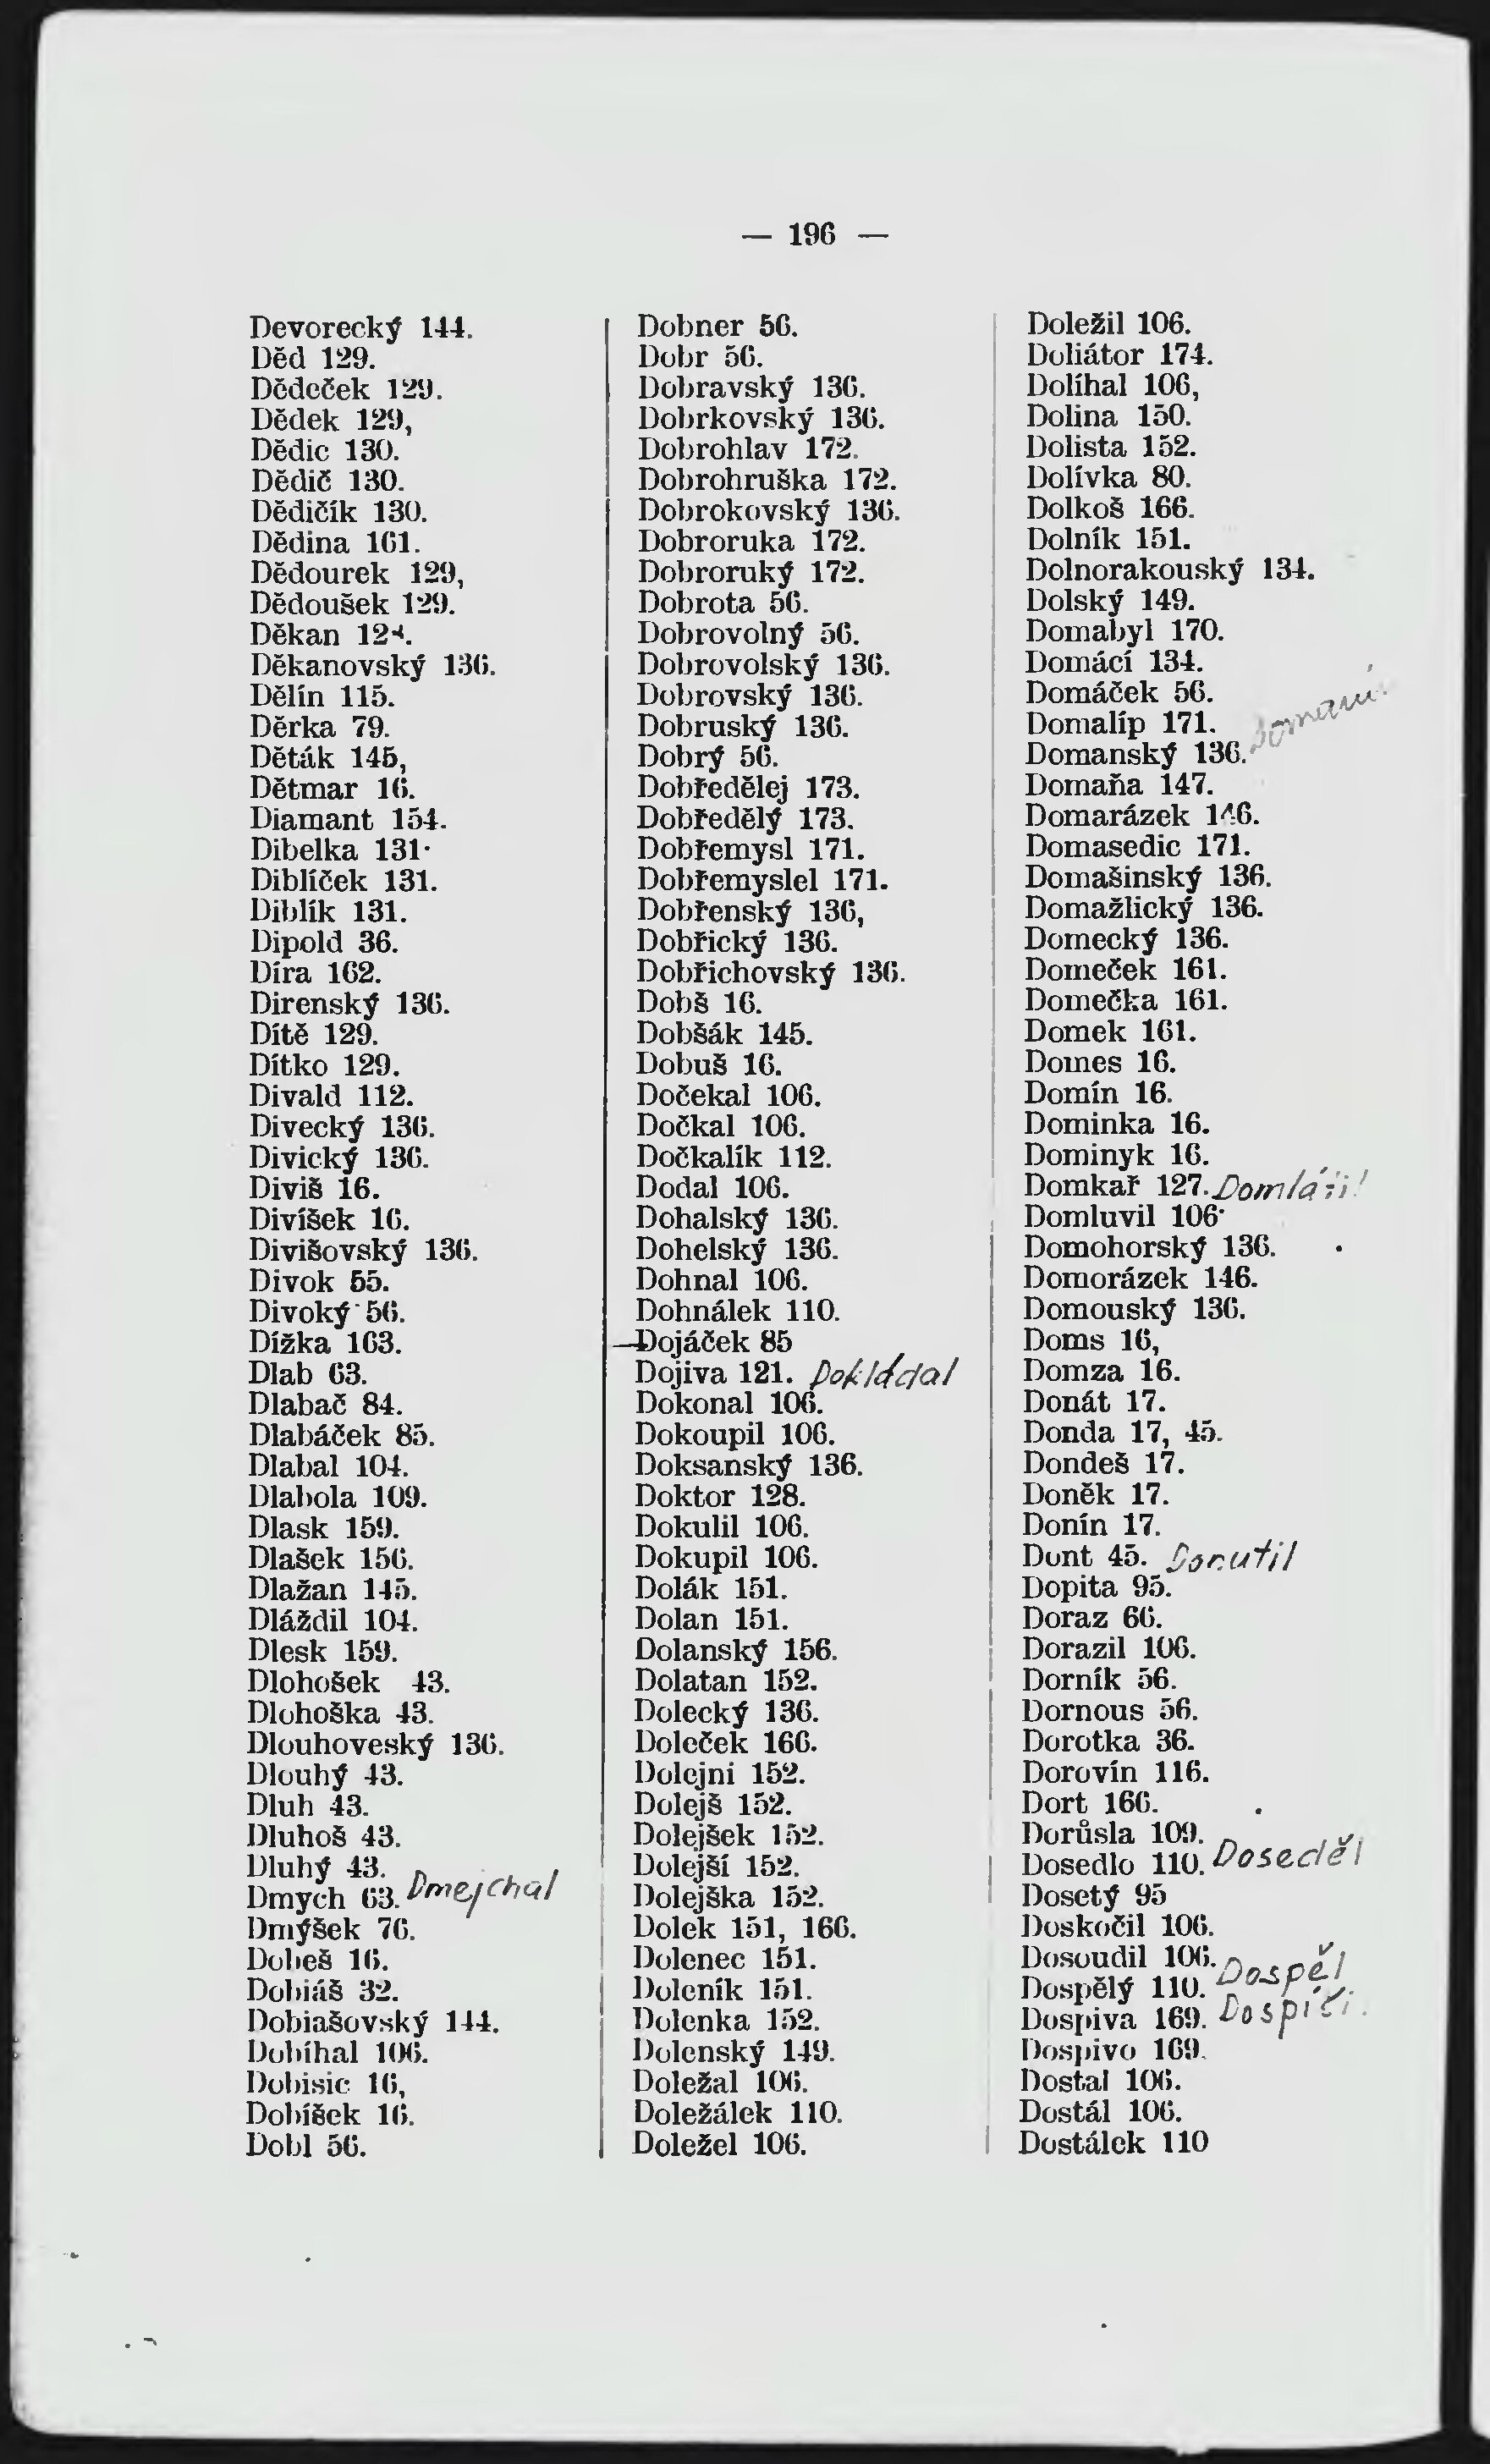 — 196 —
Devorecký 144.
Děd 129.
Dědeček 129.
Dědek 129,
Dědic 130.
Dědič 130.
Dědičík 130.
Dědina 161.
Dědourek 129,
Dědoušek 129.
Děkan 128.
Děkanovský 136.
Dělín 115.
Děrka 79.
Děták 145,
Dětmar 16.
Diamant 154.
Dibelka 131·
Diblíček 131.
Diblík 131.
Dipold 36.
Díra 162.
Direnský 136.
Dítě 129.
Dítko 129.
Divald 112.
Divecký 136.
Divický 136.
Diviš 16.
Divíšek 16.
Divišovský 136.
Divok 55.
Divoký 56.
Dížka 163.
Dlab 63.
Dlabač 84.
Dlabáček 85.
Dlabal 104.
Dlabola 109.
Dlask 159.
Dlašek 156.
Dlažan 145.
Dláždil 104.
Dlesk 159.
Dlohošek 43.
Dlohoška 43.
Dlouhoveský 136.
Dlouhý 43.
Dluh 43.
Dluhoš 43.
Dluhý 43.
Dmych 63. Dmejchal
Dmýšek 76.
Dobeš 16.
Dobiáš 32.
Dobiašovský 144.
Dobíhal 106.
Dobisic 16,
Dobíšek 16.
Dobl 56.
Dobner 56.
Dobr 56.
Dobravský 136.
Dobrkovský 136.
Dobrohlav 172.
Dobrohruška 172.
Dobrokovský 136.
Dobroruka 172.
Dobroruký 172.
Dobrota 56.
Dobrovolný 56.
Dobrovolský 136.
Dobrovský 136.
Dobruský 136.
Dobrý 56.
Dobředělej 173.
Dobředělý 173.
Dobřemysl 171.
Dobřemyslel 171.
Dobřenský 136,
Dobřický 136.
Dobřichovský 136.
Dobš 16.
Dobšák 145.
Dobuš 16.
Dočekal 106.
Dočkal 106.
Dočkalík 112.
Dodal 106.
Dohalský 136.
Dohelský 136.
Dohnal 106.
Dohnálek 110.
Dojáček 85
Dojiva 121. Dokládal
Dokonal 106.
Dokoupil 106.
Doksanský 136.
Doktor 128.
Dokulil 106.
Dokupil 106.
Dolák 151.
Dolan 151.
Dolanský 156.
Dolatan 152.
Dolecký 136.
Doleček 166.
Dolejni 152.
Dolejš 152.
Dolejšek 152.
Dolejší 152.
Dolejška 152.
Dolek 151, 166.
Dolenec 151.
Doleník 151.
Dolenka 152.
Dolenský 149.
Doležal 106.
Doležálek 110.
Doležel 106.
Doležil 106.
Doliátor 174.
Dolíhal 106,
Dolina 150.
Dolista 152.
Dolívka 80.
Dolkoš 166.
Dolník 151.
Dolnorakouský 134.
Dolský 149.
Domabyl 170.
Domácí 134.
Domáček 56.
Domalíp 171.
Domanský 136.
Domaňa 147.
Domarázek 146.
Domasedic 171.
Domašinský 136.
Domažlický 136.
Domecký 136.
Domeček 161.
Domečka 161.
Domek 161.
Domes 16.
Domín 16.
Dominka 16.
Dominyk 16.
Domkař 127.
Domluvil 106·
Domohorský 136.
Domorázek 146.
Domouský 136.
Doms 16,
Domza 16.
Donát 17.
Donda 17, 45.
Dondeš 17.
Doněk 17.
Donín 17.
Dont 45. Donutil
Dopita 95.
Doraz 66.
Dorazil 106.
Dorník 56.
Dornous 56.
Dorotka 36.
Dorovín 116.
Dort 166.
Dorůsla 109.
Dosedlo 110. Doseděl
Dosetý 95
Doskočil 106.
Dosoudil 106.
Dospělý 110. Dospěl
Dospiva 169.
Dospivo 169.
Dostal 106.
Dostál 106.
Dostálek 110